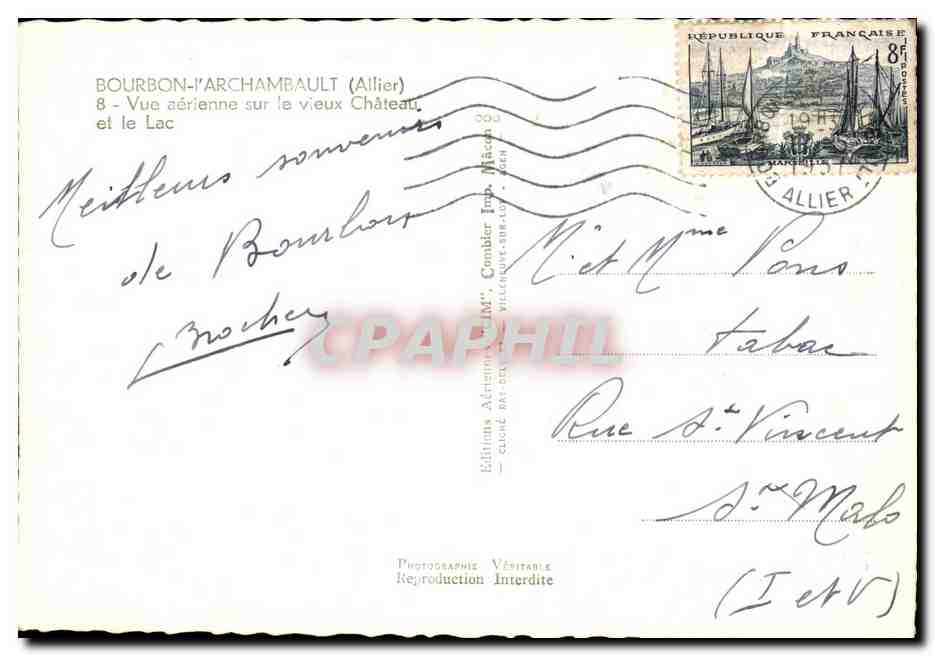 BOURBON-l'ARCHAMBAULT (Allier)
8 - Vue aérienne sur le vieux Château
et le Lac
Meilleurs souvenirs
de Bourbon
Brochery
RÉPUBLIQUE FRANÇAISE
8F
POSTES
MARSEILLE
19H
ALLIER
Editions Aériennes "CIM", Combier Imp. Mâcon
CLICHÉ RAY-DELVERT VILLENEUVE-SUR-LOT - AGEN
CPAPHIL
Mr et Mme Pons
tabac
Rue St Vincent
St Malo
(I et V)
PHOTOGRAPHIE VÉRITABLE
Reproduction Interdite